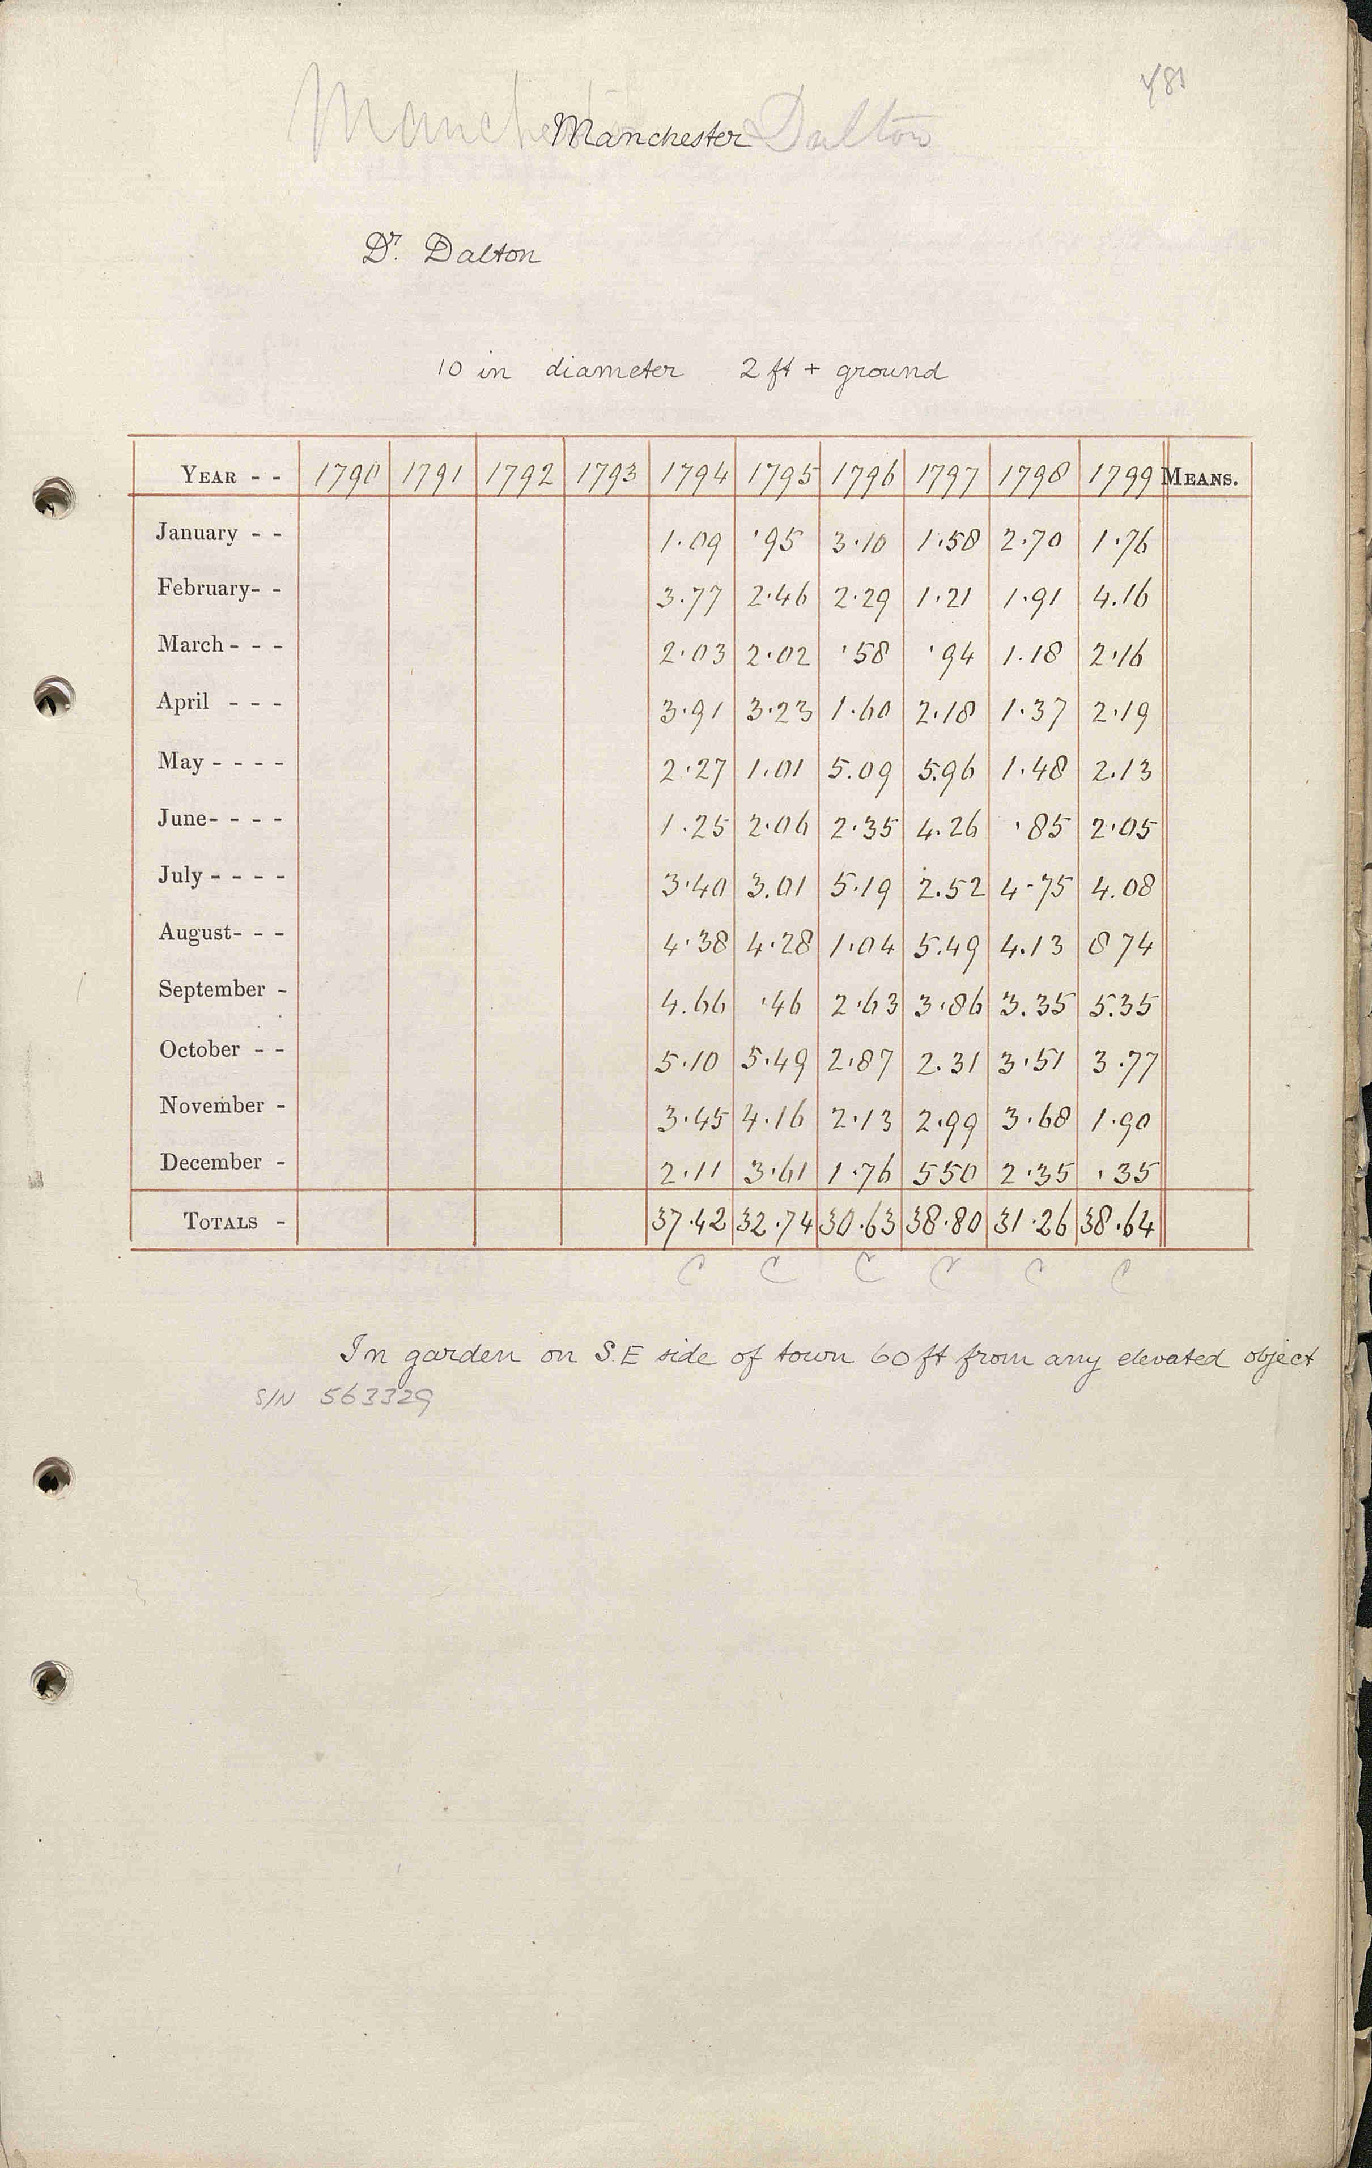 Manchester Dalton
Manchester
Dr. Dalton
10 in diameter 2 ft + ground
YEAR - - 1790 1791 1792 1793 1794 1795 1796 1797 1798 1799 MEANS.
January - - 1.09 .95 3.10 1.58 2.70 1.76
February- - 3.77 2.46 2.29 1.21 1.91 4.16
March - - - 2.03 2.02 .58 .94 1.18 2.16
April - - - 3.91 3.23 1.60 2.18 1.37 2.19
May - - - - 2.27 1.01 5.09 5.96 1.48 2.13
June- - - - 1.25 2.06 2.35 4.26 .85 2.05
July - - - - 3.40 3.01 5.19 2.52 4.75 4.08
August- - - 4.38 4.28 1.04 5.49 4.13 8 74
September - 4.66 .46 2.63 3.86 3.35 5.35
October - - 5.10 5.49 2.87 2.31 3.51 3.77
November - 3.45 4.16 2.13 2.99 3.68 1.90
December - 2.11 3.61 1.76 550 2.35 .35
TOTALS - 37.42 32.74 30.63 38.80 31.26 38.64
C C C C C C
In garden on S.E side of town 60 ft from any elevated object
S/N 563329